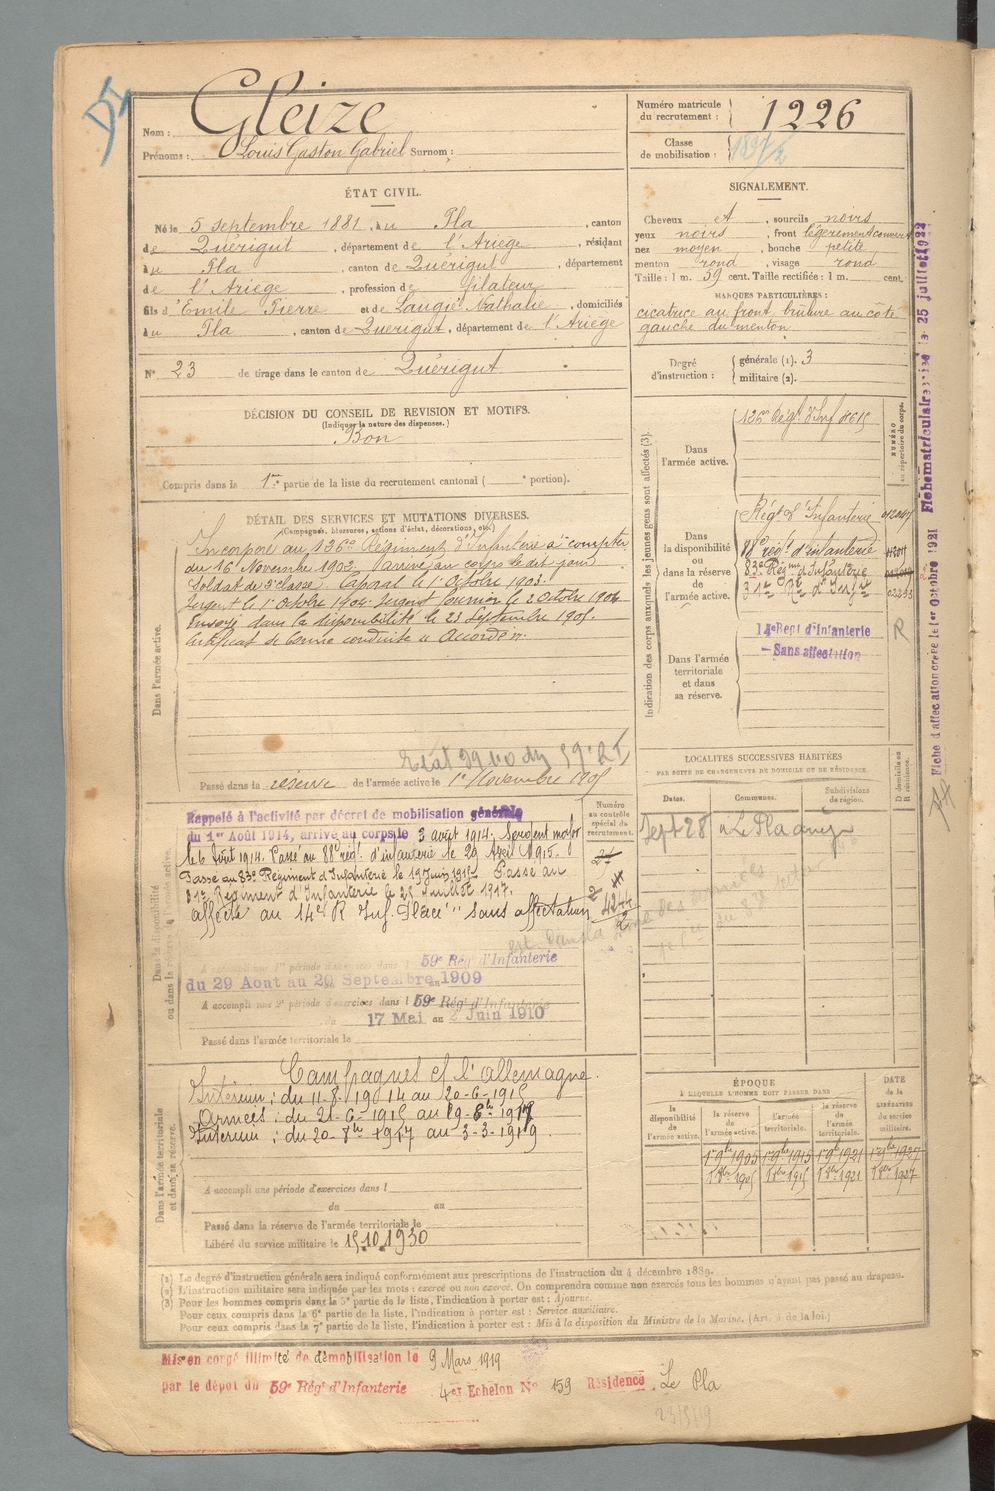 Nom : Gleize
Prénoms : Louis Gaston Gabriel Surnom :
Numéro matricule du recrutement : 1226
Classe de mobilisation :
ÉTAT CIVIL.
Né le 5 septembre 1881, à u Pla, canton
de Quérigut, département de l'Ariège, résidant
à u Pla, canton de Quérigut, département
de l'Ariège, profession de
fils d'Emile Pierre et de Laugié Nathalie, domiciliés
à u Pla, canton de Quérigut, département de l'Ariège
N° 23 de tirage dans le canton de Quérigut
SIGNALEMENT.
Cheveux et, sourcils noirs
yeux noirs, front légèrement couvert
nez moyen, bouche petite
menton rond, visage rond
Taille : 1 m. 59 cent. Taille rectifiée : 1 m. cent.
MARQUES PARTICULIÈRES :
cicatrice au front, brulure au côté
gauche du menton
Degré d'instruction : générale (1). 3
militaire (2).
DÉCISION DU CONSEIL DE REVISION ET MOTIFS.
(Indiquer la nature des dispenses.)
Bon
Compris dans la 1re partie de la liste du recrutement cantonal ( e portion).
DÉTAIL DES SERVICES ET MUTATIONS DIVERSES.
(Campagnes, blessures, actions d'éclat, décorations, etc.)
Dans l'armée active.
Incorporé au 126e Régiment d'Infanterie à compter
du 16 Novembre 1902. Arrivé au corps le dit jour
Soldat de 2e classe. Caporal le 1er Octobre 1903.
Sergent le 1er Octobre 1904. Sergent fourrier le 2 Octobre 1904
Envoyé dans la disponibilité le 23 Septembre 1905.
Certificat de bonne conduite "Accordé".
Passé dans la réserve de l'armée active le 1er Novembre 1905
Indication des corps auxquels les jeunes gens sont affectés (3).
NUMÉRO au répertoire du corps.
Dans l'armée active.
126e Régt d'Inf
Dans la disponibilité ou dans la réserve de l'armée active.
Régt d'Infanterie
88e régt d'infanterie
83e Régiment d'Infanterie
31e Rt d'Infrie
14e Regt d'Infanterie
- Sans affectation
R
Dans l'armée territoriale et dans sa réserve.
Dans la disponibilité ou dans la réserve de l'armée active.
Rappelé à l'activité par décret de mobilisation générale
du 1er Août 1914, arrivé au corps le 3 août 1914. Sergent major
le 6 Août 1914. Passé au 88e régt d'infanterie le 29 Avril 1915.
Passé au 83e Régiment d'Infanterie le 19 Juin 1915. Passé au
31e Régiment d'Infanterie le 25 Juillet 1917.
Affecté au 14e R Inf. Placé "sans affectation"
A accompli une 1re période d'exercices dans l 59e Rég' d'Infanterie
du 29 Aout au 20 Septembre 1909
A accompli une 2e période d'exercices dans l 59e Rég' d'Infanterie
du 17 Mai au 2 Juin 1910
Passé dans l'armée territoriale le
Numéro au contrôle spécial du recrutement.
LOCALITÉS SUCCESSIVES HABITÉES
PAR SUITE DE CHANGEMENTS DE DOMICILE OU DE RÉSIDENCE.
Dates. Communes. Subdivisions de région. D domicile ou R résidence.
Sept 28 Le Pla
Dans l'armée territoriale et dans sa réserve.
Campagnes c/ l'Allemagne.
Intérieur : du 11-8-1914 au 20-6-1915
Armées : du 21-6-1915 au
Intérieur : du au 3-3-1919
A accompli une période d'exercices dans l
du au
Passé dans la réserve de l'armée territoriale le
Libéré du service militaire le 15.10.1930
ÉPOQUE
À LAQUELLE L'HOMME DOIT PASSER DANS
la disponibilité de l'armée active. la réserve de l'armée active. l'armée territoriale. la réserve de l'armée territoriale. DATE de la LIBÉRATION du service militaire.
1er 9bre 1905 1er 9bre 1915 1er 9bre 1921 1er 9bre 1927
(1) Le degré d'instruction générale sera indiqué conformément aux prescriptions de l'instruction du 4 décembre 1889.
(2) L'instruction militaire sera indiquée par les mots : exercé ou non exercé. On comprendra comme non exercés tous les hommes n'ayant pas passé au drapeau.
(3) Pour les hommes compris dans la 5e partie de la liste, l'indication à porter est : Ajourné.
Pour ceux compris dans la 6e partie de la liste, l'indication à porter est : Service auxiliaire.
Pour ceux compris dans la 7e partie de la liste, l'indication à porter est : Mis à la disposition du Ministre de la Marine. (Art. 4 de la loi.)
Mis en congé illimité de démobilisation le 9 Mars 1919
par le dépôt du 59e Rég' d'Infanterie 4er Echelon N° 159 Résidence Le Pla
Fiche d'affectation créée le 1er Octobre 1921